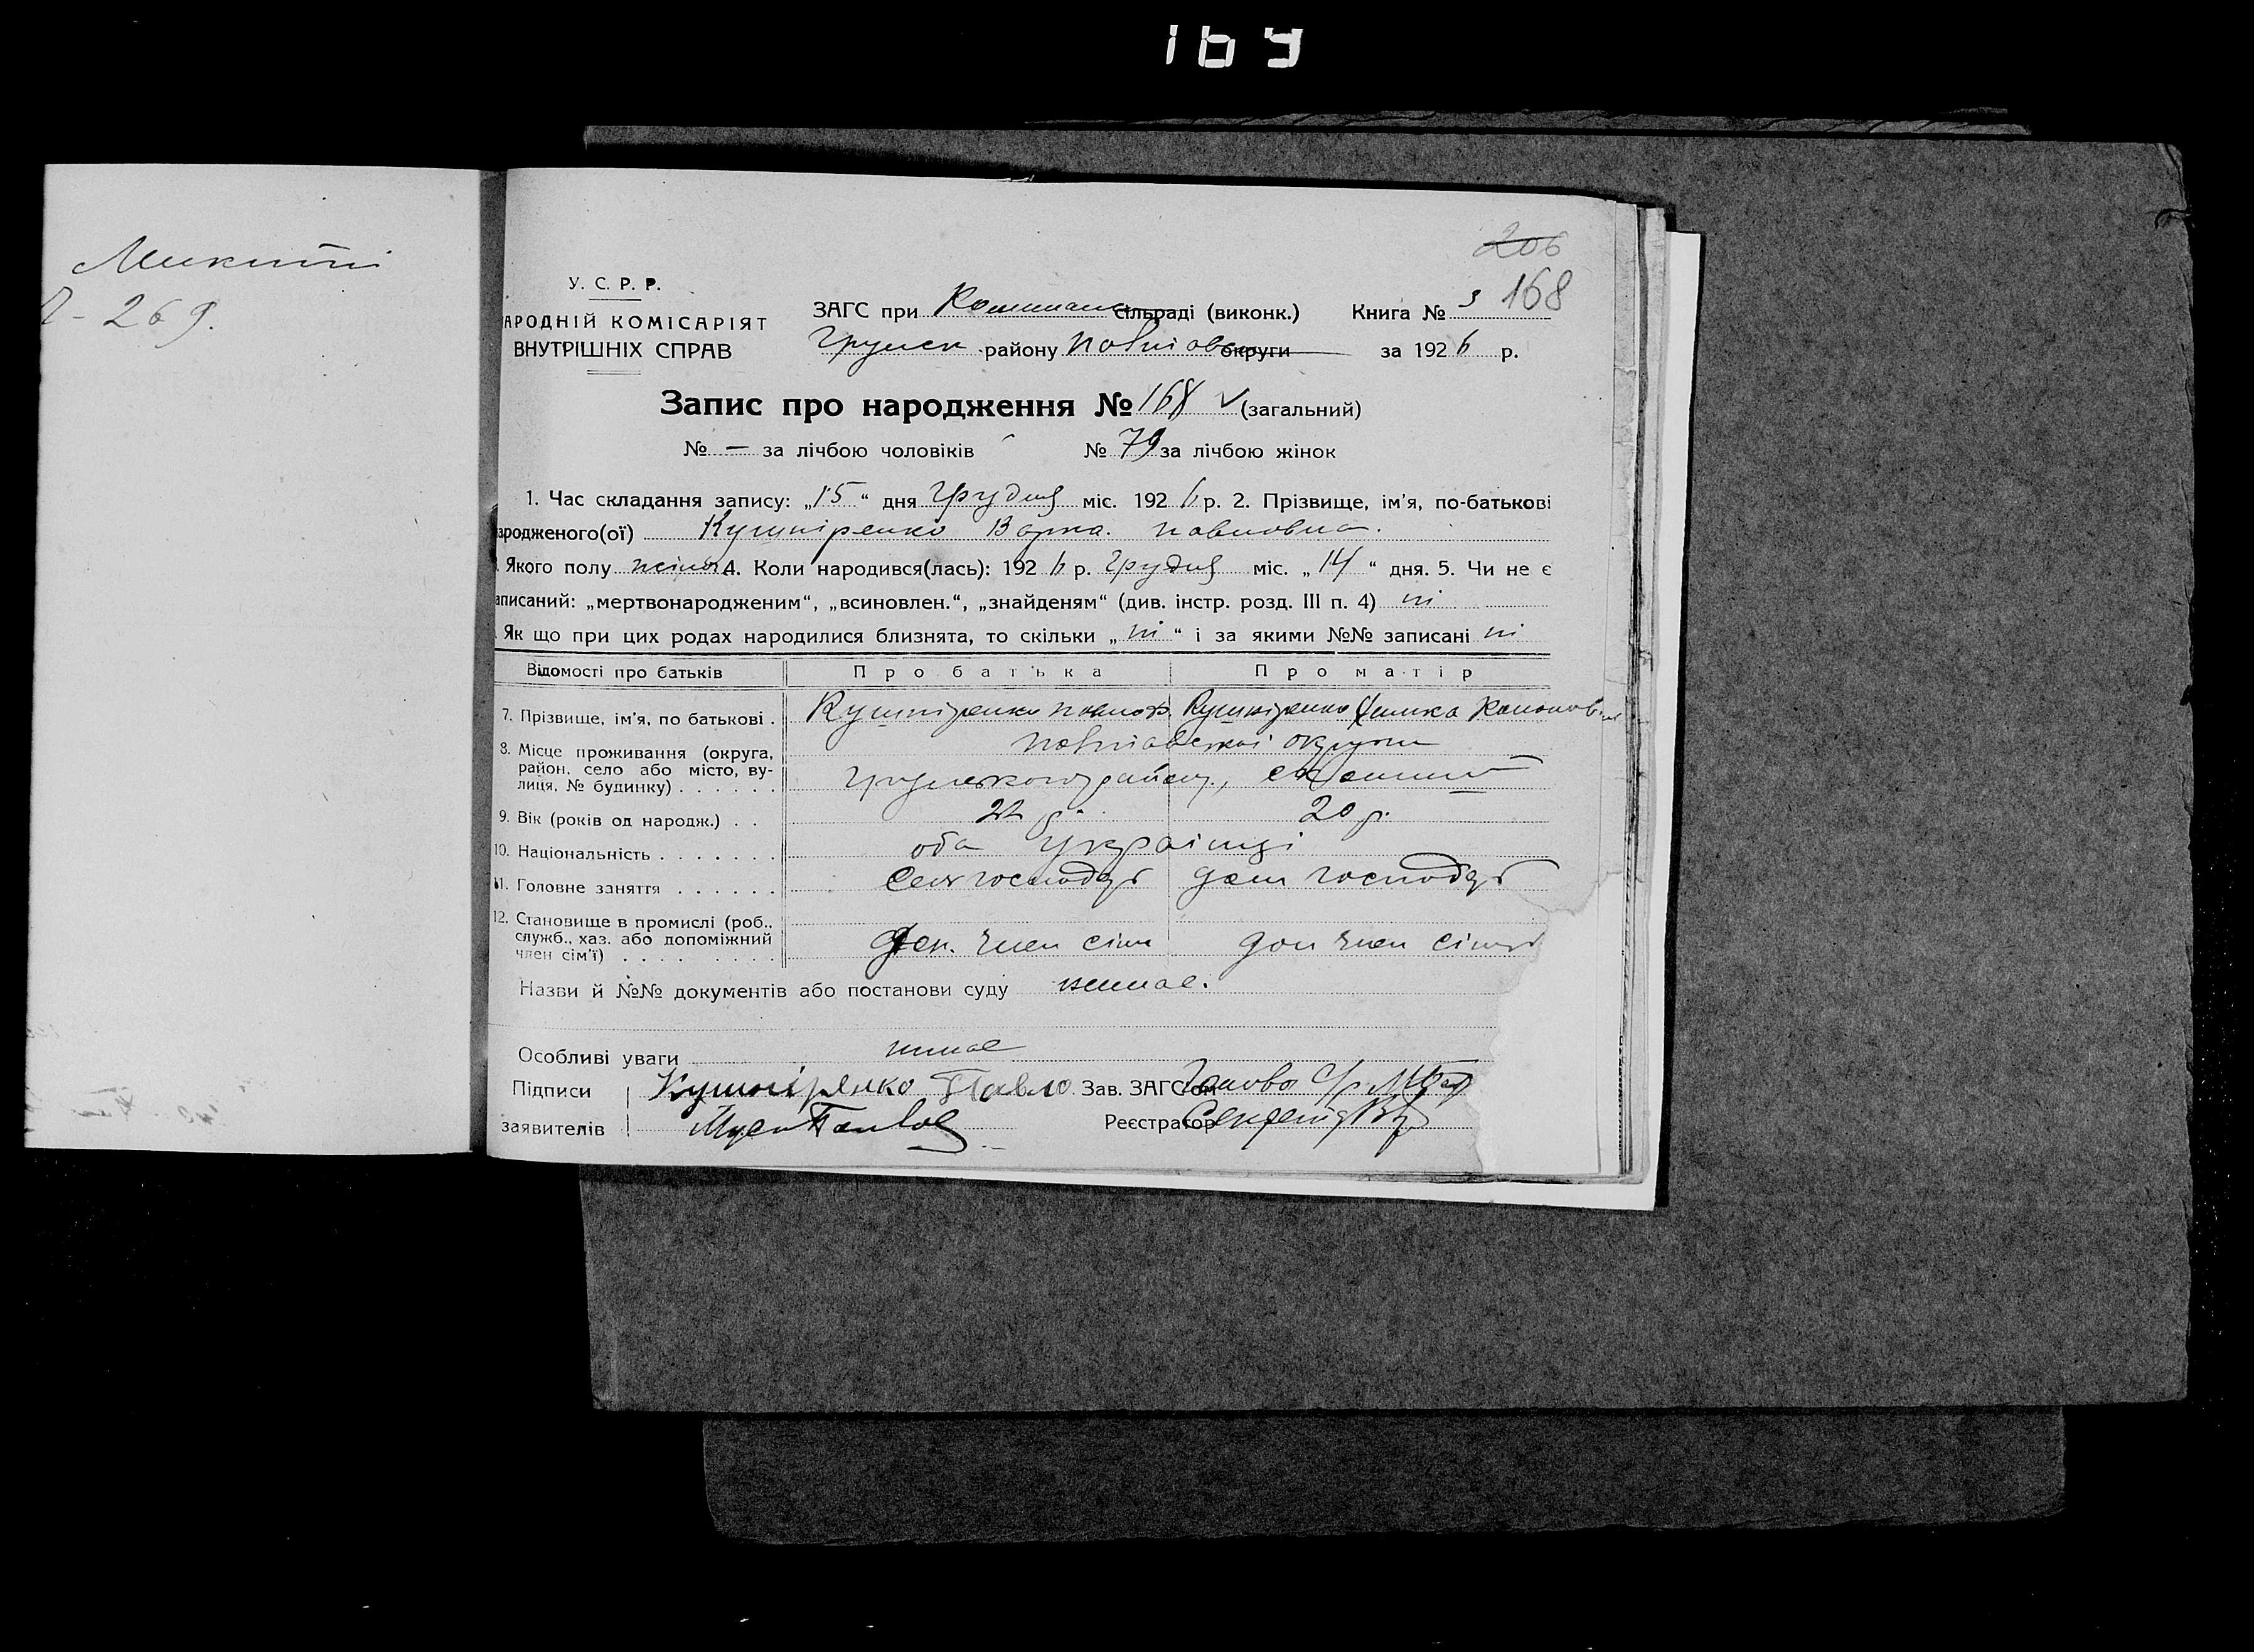 169
Микити
269.
206
168
У. С. Р. Р.
АРОДНІЙ КОМІСАРІЯТ
ВНУТРІШНІХ СПРАВ
ЗАГС при сільраді (виконк.) Книга № 3
Грунськ району Полтавськ округи за 1926 р.
Запис про народження № 168 (загальний)
№ — за лічбою чоловіків № 79 за лічбою жінок
1. Час складання запису: „15“ дня Грудня міс. 1926 р. 2. Прізвище, ім'я, по-батькові
ародженого(ої) Кушніренко Варка. Павловна.
Якого полу жіноч 4. Коли народився(лась): 1926 р. Грудня міс. „14“ дня. 5. Чи не є
аписаний: „мертвонародженим“, „всиновлен.“, „знайденям“ (див. інстр. розд. III п. 4) ні
Як що при цих родах народилися близнята, то скільки „ні“ і за якими №№ записані ні
Відомості про батьків Про батька Про матір
7. Прізвище, ім'я, по батькові . Кушніренко Павло Кушніренко Кононовна
8. Місце проживання (округа, район, село або місто, вулиця, № будинку) . . . . . . Полтавської округи
Грунського району,
9. Вік (років од народж.) . . 22 р. 20 р.
10. Національність . . . . . . . оба Українці
11. Головне заняття . . . . . . Сел господар дом господар
12. Становище в промислі (роб., служб., хаз. або допоміжний член сім'ї) . . . . . . . . . член сім дом член сімї
Назви й №№ документів або постанови суду немає.
Особливі уваги немає
Підписи Кушніренко Павло Зав. ЗАГСом Голова С/р
заявителів Реєстратор Секретар